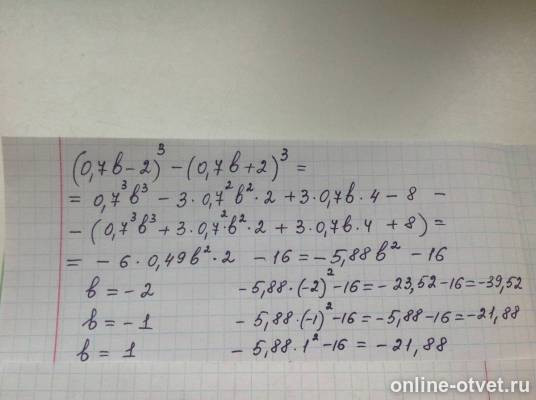 (0,7b-2)³ - (0,7b+2)³ =
= 0,7³b³ - 3·0,7²b²·2 + 3·0,7b·4 - 8 -
- (0,7³b³ + 3·0,7²b²·2 + 3·0,7b·4 + 8) =
= - 6·0,49b²·2 - 16 = - 5,88b² - 16
b = - 2 - 5,88·(-2)² - 16 = - 23,52 - 16 = - 39,52
b = - 1 - 5,88·(-1)² - 16 = - 5,88 - 16 = - 21,88
b = 1 - 5,88·1² - 16 = - 21,88
online-otvet.ru